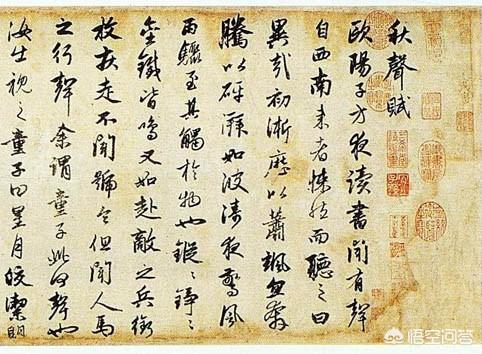 秋聲賦
歐陽子方夜讀書聞有聲
自西南来者悚然而聽之曰
異哉初淅瀝以蕭颯忽奔
騰以砰湃如波濤夜驚風
雨驟至其觸於物也鏦〻錚〻
金鐵皆鳴又如赴敵之兵銜
枚疾走不聞號令但聞人馬
之行聲余謂童子此何聲也
汝出視之童子曰星月皎潔明
悟空问答